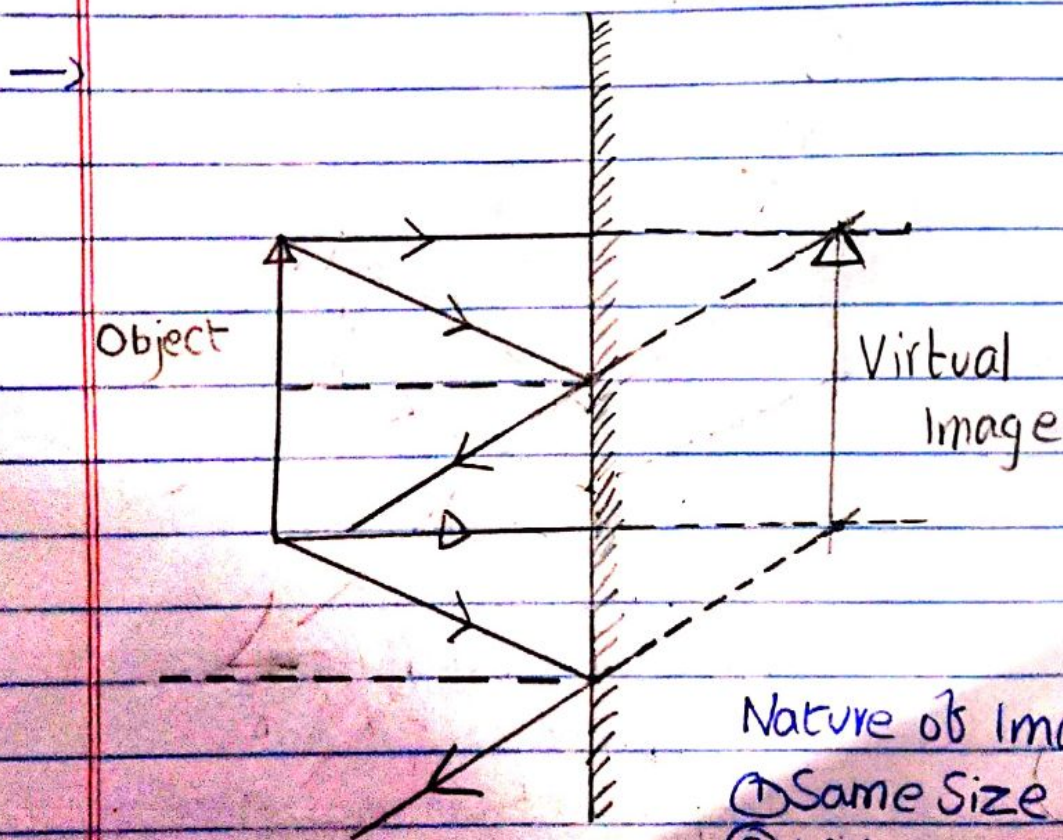 Object
Virtual
Image
Nature of
① Same Size